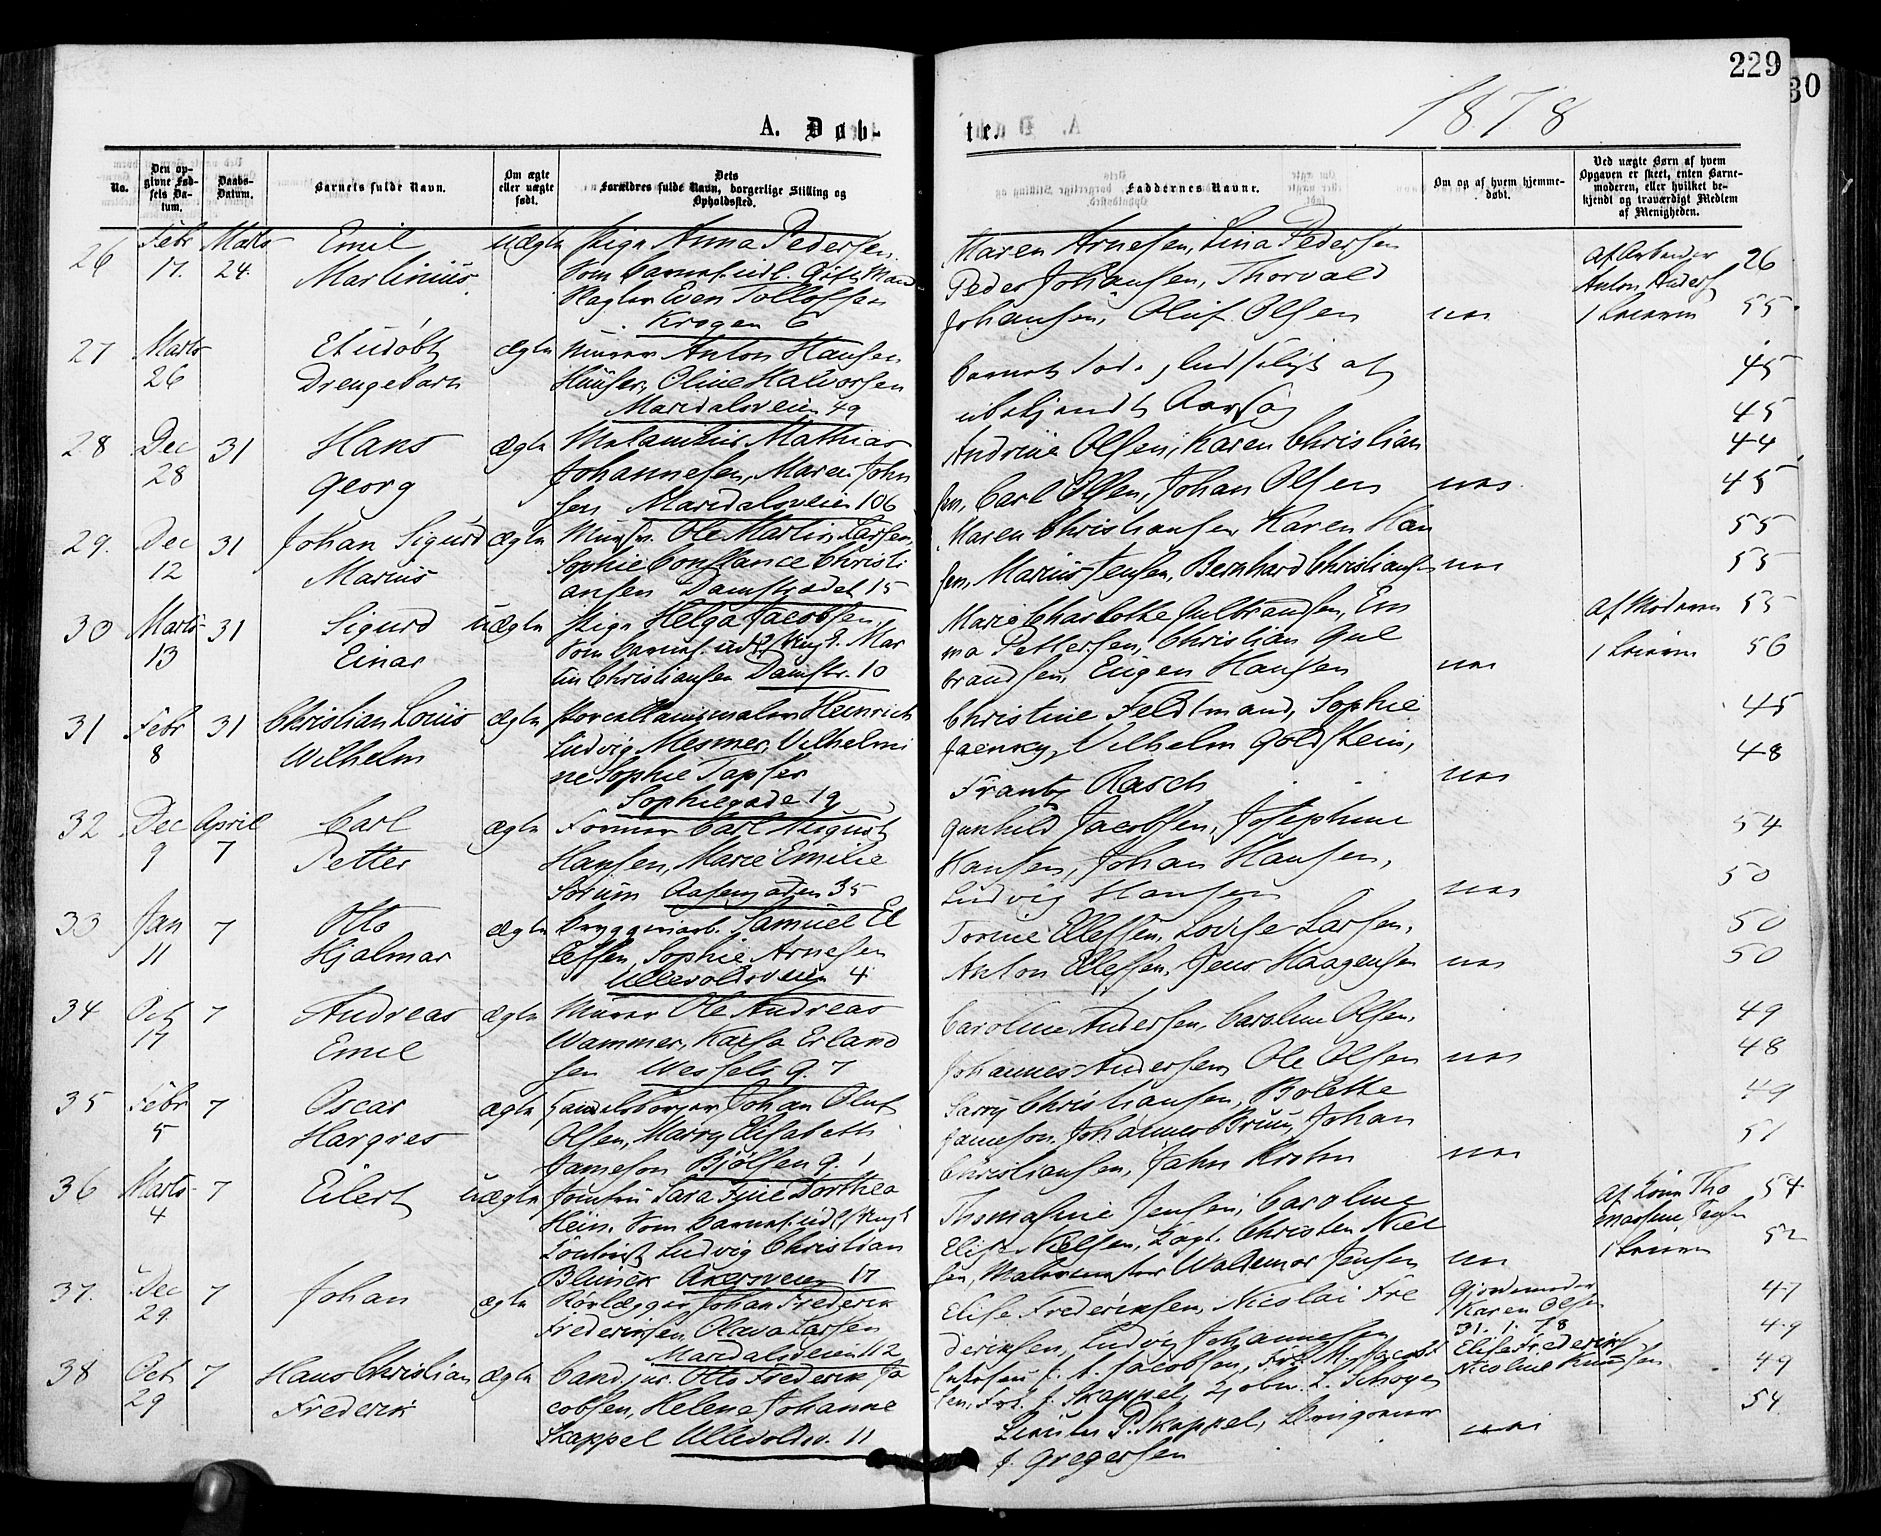 229
30
1878
A. Døb-
te.
No.
Den op-
givne Fød-
sels Da-
tum.
Daabs-
Datum.
Barnets fulde Navn.
Om ægte
eller uægte
født.
Dets
Forældres fulde Navn, borgerlige Stilling og
Opholdssted.
Faddernes Navne.
Om og af hvem hjemme-
døbt.
Ved uægte Børn af hvem
Opgaven er skeet, enten Barne-
moderen, eller hvilket be-
kjendt og troværdigt Medlem
af Menigheden.
26 Febr Marts Emil uægte Pige Anna Pedersen
17. 24. Martinius. som barnef. udl. Gift Mand
Even Tollofsen
Krogen 6
Maren Arnesen, Lina Pedersen
Peder Johansen, Thorvald
Johansen, Oluf Olsen nei
af Arbeider 26
Anton Anders
55
27 Marts Et udøbt ægte Murer Anton Hansen
26 Drengebarn Oline Halvorsen
Maridalsveien 49
Barnets
ubekjendt
45
45
28 Dec 31 Hans ægte Mathias
28 Georg Johannesen, Maren John
sen Maridalsveien 106
Andrine Olsen, Karen Christian
sen, Carl Olsen, Johan Olsen nei
44
45
29. Dec 31 Johan Sigurd ægte Ole Martin Larsen,
12 Marius Sophie Constance Christi
ansen Damstrædet 15
Maren Christiansen Karen Han
sen, Marius Jensen, Bernhard Christiansen nei
55
55
30 Marts 31 Sigurd uægte Pige Helga Jacobsen,
13 Einar som barnef. udl. Ungk. Mar
tin Christiansen Damstr. 10
Marie Charlotte Gulbrandsen, Em
ma Pettersen, Christian Gul
brandsen, Eugen Hansen nei
af Moderen 55
56
31 Febr 31 Christian Louis ægte Heinrich
8 Wilhelm Ludvig Mesmer, Vilhelmi
ne Sophie Tapser
Sophiegade 19
Christine Feldtmand, Sophie
Vilhelm Goldstein,
Frantz Rasch nei
45
48
32 Dec April Carl ægte Former Carl August
9 7 Petter Hansen, Marie Emilie
Sørum Aasengaden 35
Gunhild Jacobsen, Josephine
Hansen, Johan Hansen,
Ludvig Hansen nei
54
50
33 Jan 7 Otto ægte Bryggeriarb. Samuel El
11 Hjalmar lefsen, Sophie Arnesen
Ullevoldsveien 4
Torine Ellefsen, Lovise Larsen,
Anton Ellefsen, Jens Haagensen nei
50
50
34 Oct 7 Andreas ægte Murer Ole Andreas
17 Emil Wammer, Kaisa Erland
sen Wessels g. 7
Caroline Andersen, Caroline Olsen,
Johannes Andersen, Ole Olsen nei
49
48
35 Febr 7 Oscar ægte Handelsborger Johan Oluf
5 Hargres Olsen, Marry Elisabeth
Jameson Bjølsen g. 1
Sarry Christiansen, Bolette
Jameson, Johannes Bruun, Johan
Christiansen, Jahn Krohn nei
49
51
36 Marts 7 Eilert uægte Jomfru Sara Tine Dorthea
4 Hein, som barnef. udl. Ungk
Ludvig Christian
Akersveien 17
Thomasine Jensen, Caroline
Elise Nielsen, Christen Niel
sen, Waldemar Jensen nei
af Tho 54
masine Jensen
52
37. Dec 7 Johan ægte Rørlægger Johan Frederik
29. Frederiksen, Olava Larsen
Maridalsveien 112
Elise Frederiksen, Nicolai Fre
deriksen, Ludvig Johannessen
Gjordemoder
Karen Olsen
31. 1. 78
Elise Frederiksen
Nicoline Knudsen
47
49
38 Oct 7 Hans Christian ægte Cand. jur. Otto Frederik Ja
29 Frederik cobsen, Helene Johanne
Skappel Ullevoldsv. 11
Jacobsen,
sen, Frk. J. Skappel, L. Schøyen
P. Skappel,
J. Gregersen
nei
49
54